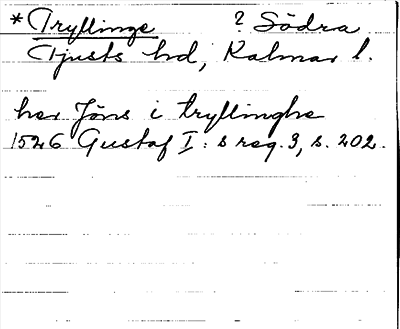 *Tryllinge ? Södra
Tjusts hd, Kalmar l.
her Jöns i tryllinghe
1526 Gustaf I:s reg. 3, s. 202.